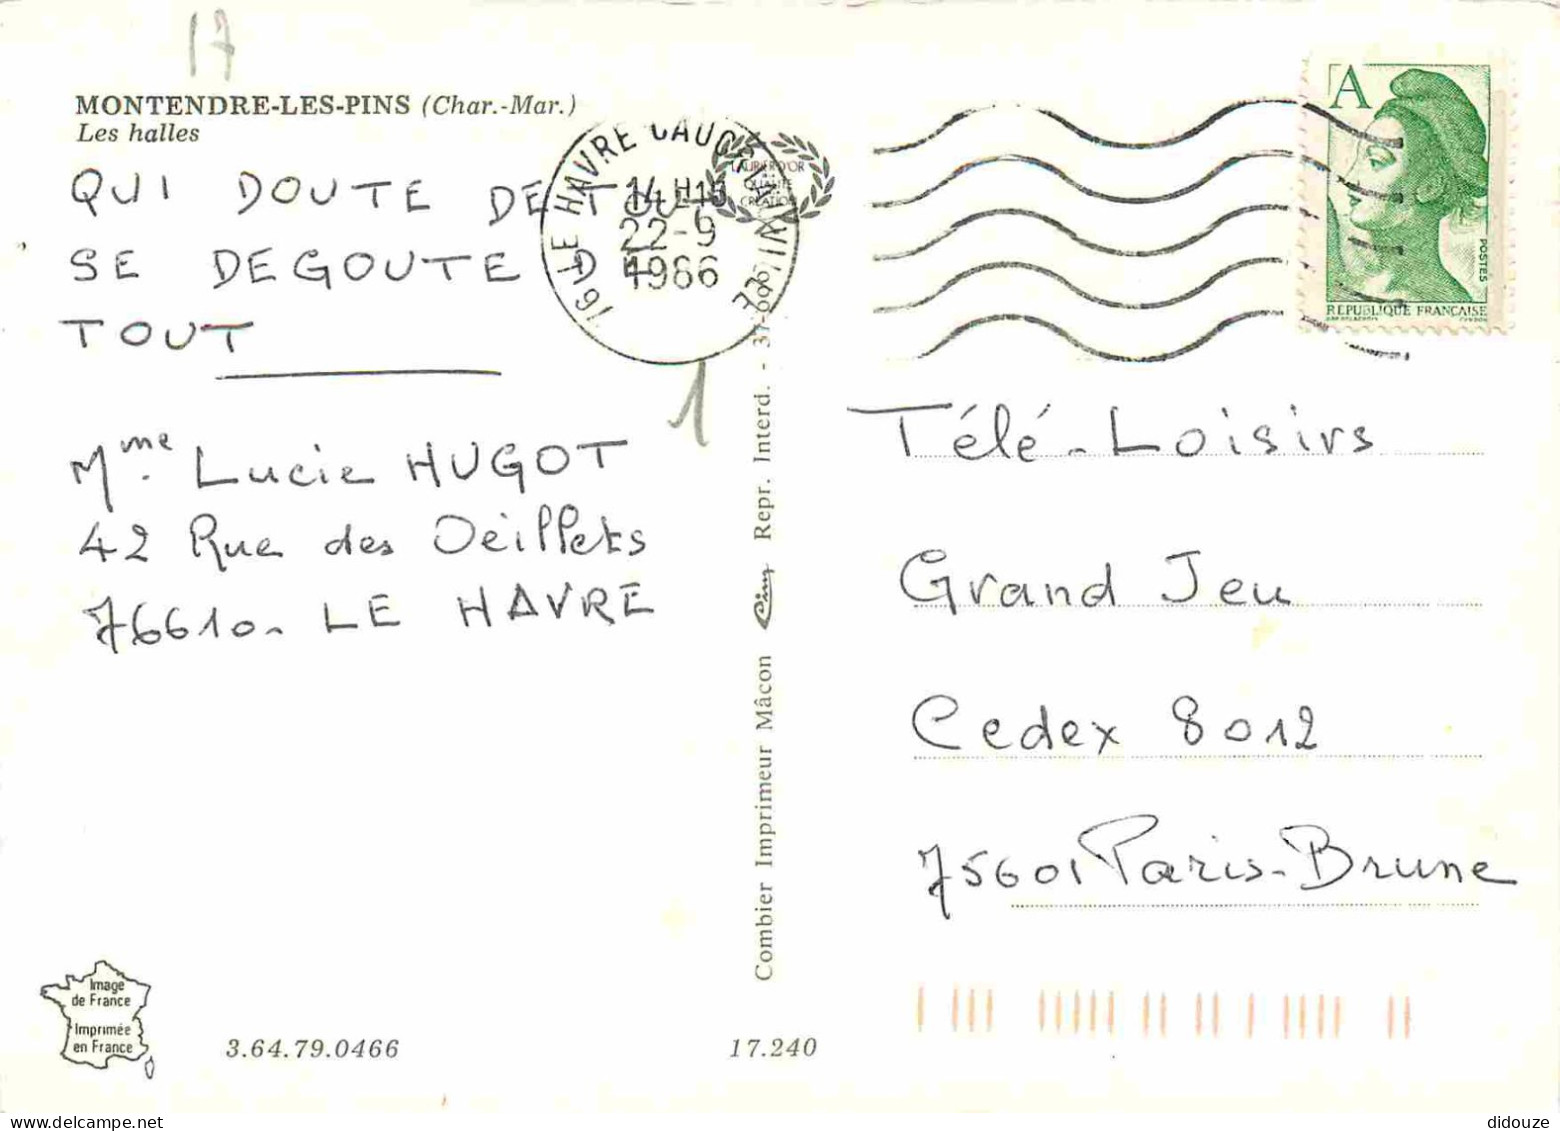 17
MONTENDRE-LES-PINS (Char.-Mar.)
Les halles
QUI DOUTE DE TOUT
SE DEGOUTE DE
TOUT
Mme. Lucie HUGOT
42 Rue des Oeillets
76610. LE HAVRE
1
76 LE HAVRE CAUCRIAUVILLE
14 H 15
22-9
1986
LAURIER D'OR
QUALITÉ
CREATION
A
POSTES
REPUBLIQUE FRANÇAISE
Télé-Loisirs
Grand Jeu
Cedex 8012
75601 Paris-Brune
Combier Imprimeur Mâcon Cim Repr. Interd. - 37-096
Image
de France
Imprimée
en France
3.64.79.0466
17.240
didouze